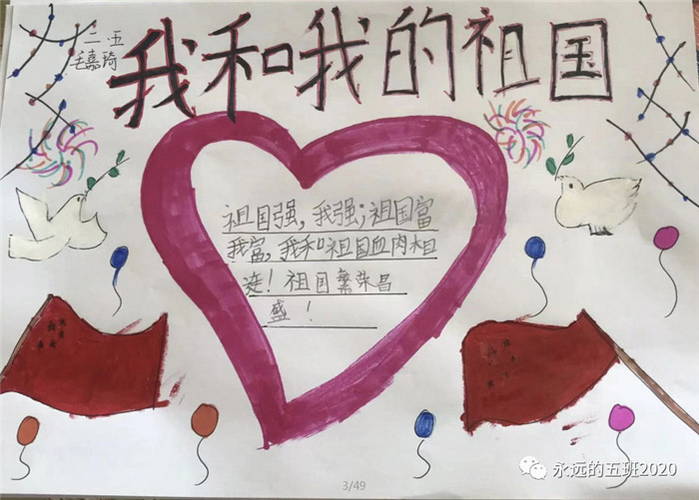 二五
毛嘉琦
我和我的祖国
祖国强，我强；祖国富
我富，我和祖国血肉相
连！祖国繁荣昌
盛！
3/49
永远的五班2020